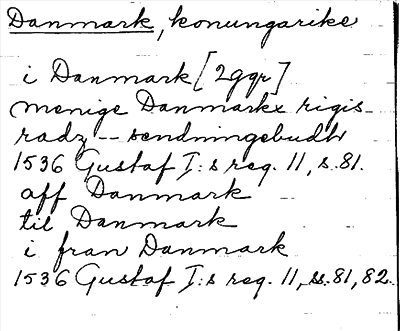 Danmark, konungarike
i Danmark [2ggr]
menige Danmarkx rigis
radz -- sendningebudh
1536 Gustaf I:s reg. 11, s. 81.
aff Danmark
til Danmark
i fran Danmark
1536 Gustaf I:s reg. 11, ss. 81, 82.